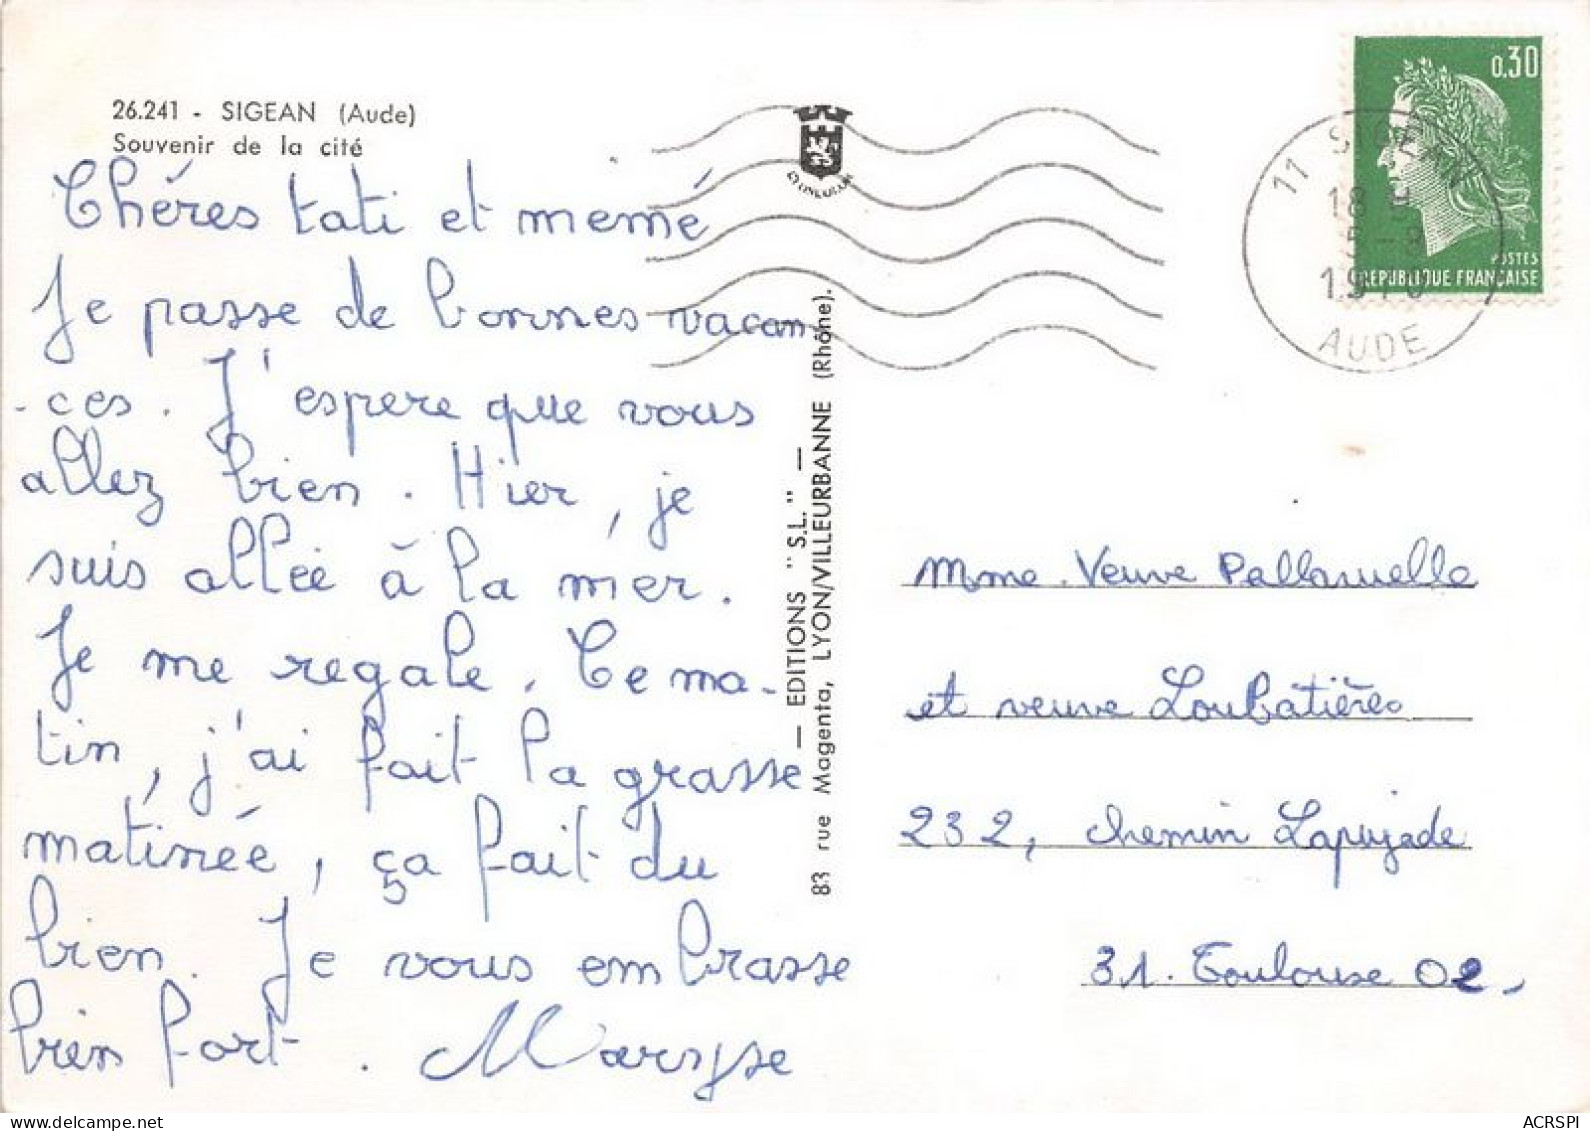 26.241 - SIGEAN (Aude)
Souvenir de la cité
Chéres tati et mémé
Je passe de bonnes vacan
-ces. J'espere que vous
allez bien. Hier, je
suis allée à la mer.
Je me regale. Ce ma-
tin, j'ai fait la grasse
matinée, ça fait du
bien. Je vous embrasse
bien fort. Maryse
— EDITIONS "S.L." —
83 rue Magenta, LYON/VILLEURBANNE (Rhône).
0,30
POSTES
REPUBLIQUE FRANÇAISE
11 SIGEAN
18 H
5-8
AUDE
Mme Veuve
et veuve Loubatières
232, chemin Lapujade
31. Toulouse 02.
ACRSPI